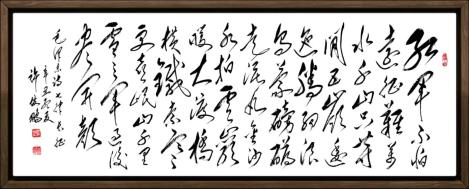 红軍不怕
遠征難萬
水千山只等
闲五嶺逶
迤腾细浪
烏蒙磅礴
走泥丸金沙
水拍雲崖
暖大渡橋
横鐵索寒
更喜岷山千里
雪三軍过後
尽开颜
毛泽东诗七律长征
辛丑夏
许